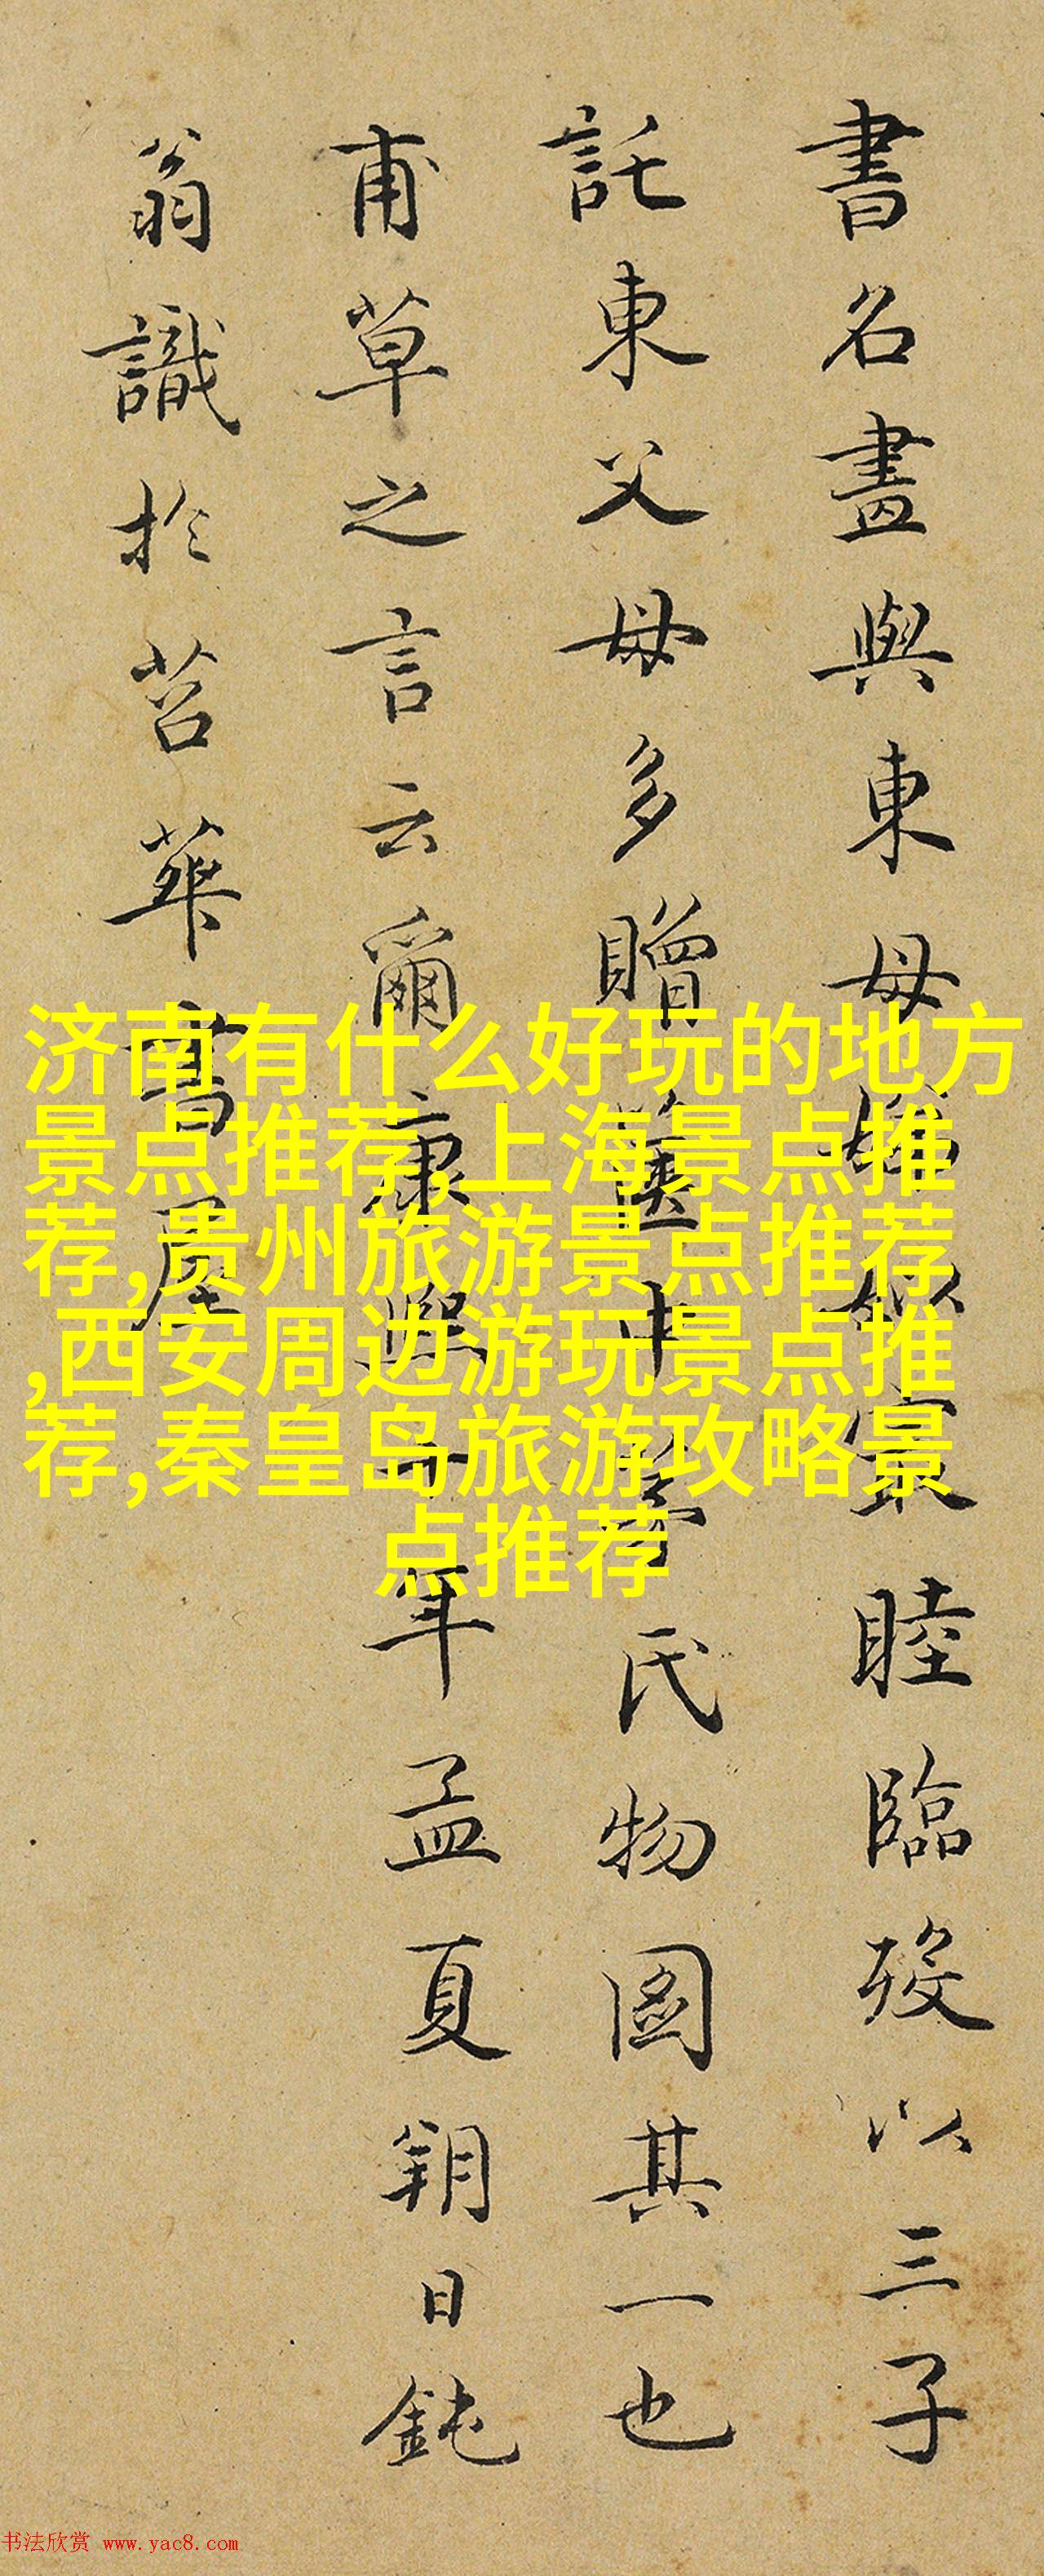 書名畫與東母最睦臨歿以三子
託東父母多贈奩中氏物圖其一也
甫草之言云爾康熙年孟夏朔日鈍
翁識於苕華書屋
济南有什么好玩的地方
景点推荐,上海景点推
荐,贵州旅游景点推荐
,西安周边游玩景点推
荐,秦皇岛旅游攻略景
点推荐
书法欣赏 www.yac8.com